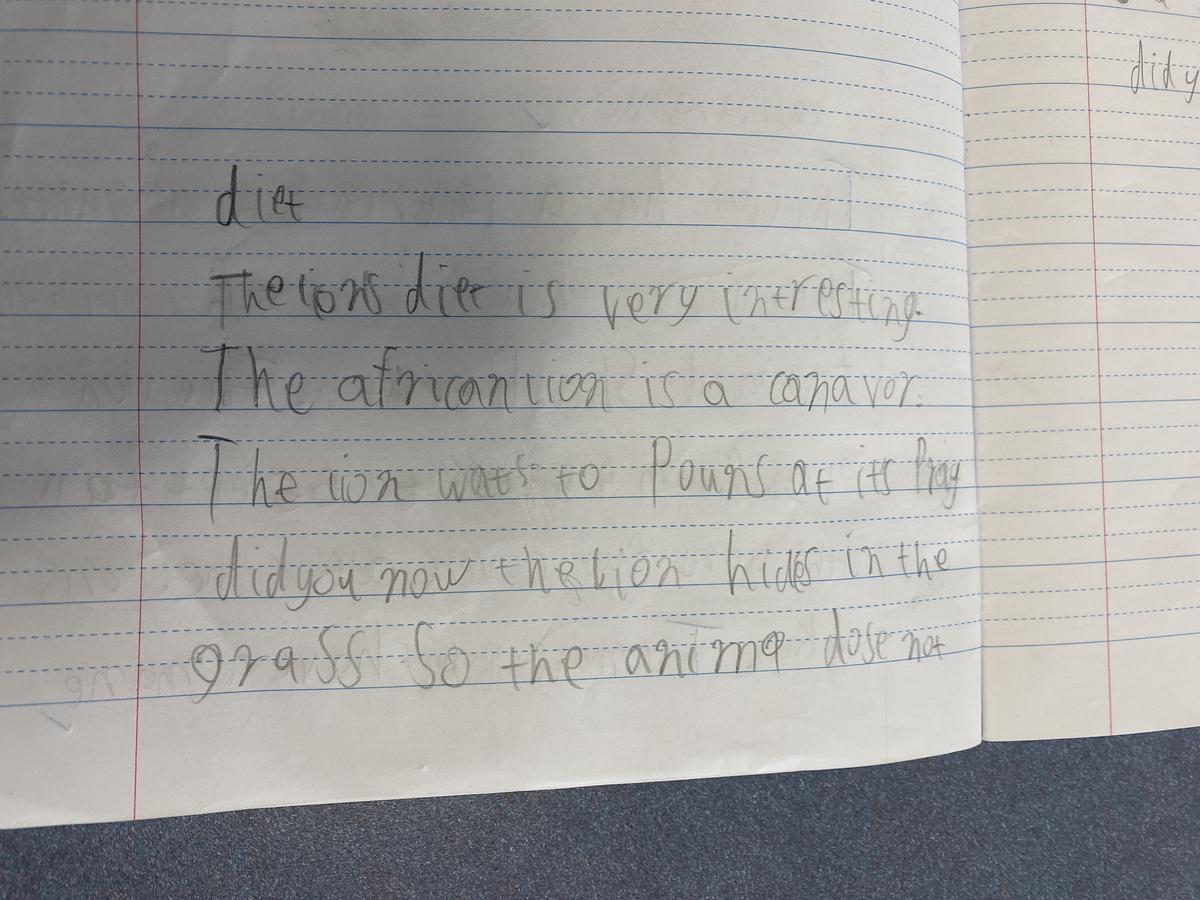 diet
The lions diet is very intresting.
The african lion is a canavor.
The lion wats to Pouns at its Pray
did you now the lion hides in the
grass So the anime dose not
did y